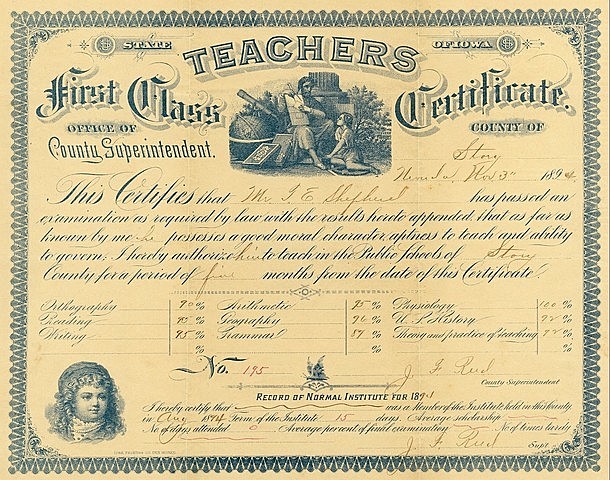 STATE OF IOWA
TEACHERS
First Class Certificate.
OFFICE OF COUNTY OF
County Superintendent. Story
Nevada, Nov 3" 1894
This Certifies that Mr. I. E. Shepherd has passed an
examination as required by law with the results hereto appended, that as far as
known by me he possesses a good moral character, aptness to teach and ability
to govern; I hereby authorize him to teach in the Public Schools of Story
County for a period of months from the date of this Certificate.
Orthography 90% Arithmetic 95% Physiology 100%
Reading 95% Geography 96% U. S. History 92%
Writing 85% Grammar % Theory and practice of teaching %
% % %
No. 195
J. F. Reed
County Superintendent
RECORD OF NORMAL INSTITUTE FOR 1894
I hereby certify that was a Member of the Institute held in this County,
in Aug 1894 Term of the Institute 15 days. Average scholarship
No of days attended 0 Average percent of final examination No of times tardy
J. F. Reed Supt.